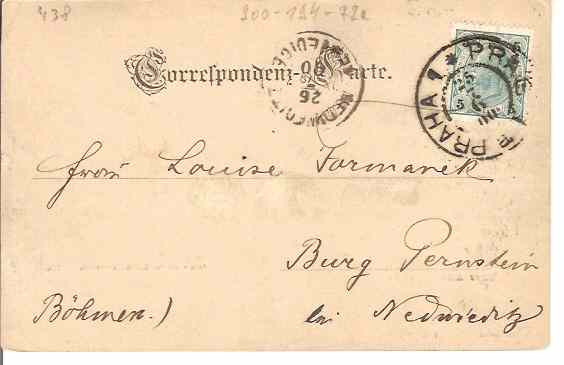 438
200-194-72a
Correspondenz-Karte.
PRAHA 1 * PRAG
26
00
Frau Louise Formanek
Burg Pernstein
Böhmen.) bei Nedwieditz